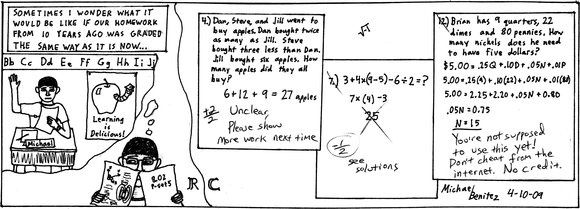 SOMETIMES I WONDER WHAT IT
WOULD BE LIKE IF OUR HOMEWORK
FROM 10 YEARS AGO WAS GRADED
THE SAME WAY AS IT IS NOW...
Bb Cc Dd Ee Ff Gg Hh Ii Jj
Learning
is
Delicious!
Michael
2.02
P-set 5
RC
4.) Dan, Steve, and Jill went to
buy apples. Dan bought twice
as many as Jill. Steve
bought three less than Dan.
Jill bought six apples. How
many apples did they all
buy?
6+12+9=27 apples
+2/2
Unclear,
Please show
more work next time
√1
7.) 3+4×(9-5)-6÷2=?
7×(4)-3
25
-1/2
see
solutions
12.) Brian has 9 quarters, 22
dimes and 80 pennies. How
many nickels does he need
to have five dollars?
$5.00=.25Q+.10D+.05N+.01P
5.00=.25(9)+.10(22)+.05N+.01(80)
5.00=2.25+2.20+.05N+0.80
.05N=0.75
N=15
You're not supposed
to use this yet!
Don't cheat from the
internet. No credit.
Michael
Benitez 4-10-09